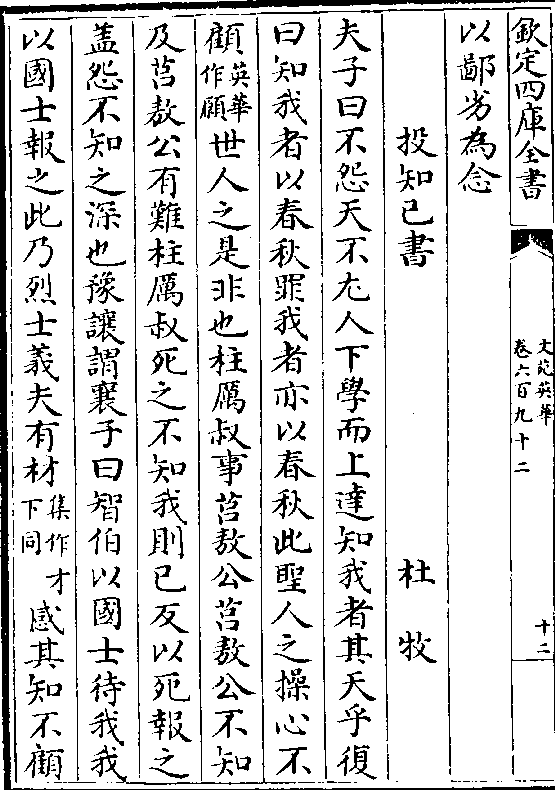 欽定四庫全書
文苑英華
卷六百九十二
十二
以鄙劣為念
投知已書
杜牧
夫子曰不怨天不尤人下學而上達知我者其天乎復
曰知我者以春秋罪我者亦以春秋此聖人之操心不
顧英華作願世人之是非也柱厲叔事莒敖公莒敖公不知
及莒敖公有難柱厲叔死之不知我則已反以死報之
蓋怨不知之深也豫讓謂襄子曰智伯以國士待我我
以國士報之此乃烈士義夫有材集作才下同感其知不顧